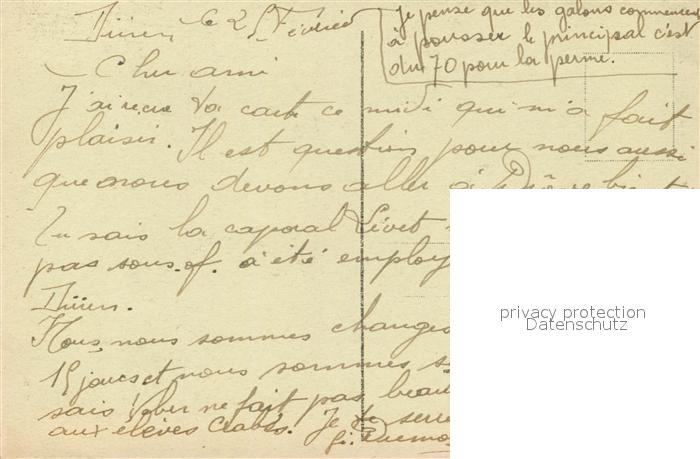 Düren, le 25 Février
Je pense que les galons commencent
à pousser le principal c'est
du 70 pour la perme.
Cher ami
J'ai reçu ta carte ce midi qui m'a fait
plaisir. Il est question pour nous aussi
que nous devons aller à
Tu sais la caporal Livet
pas sous-of. a été employ
Düren.
Nous nous sommes changés
15 jours et nous sommes
sais ! ne fait pas beau
aux élèves Crabes. Je te serre
privacy protection
Datenschutz